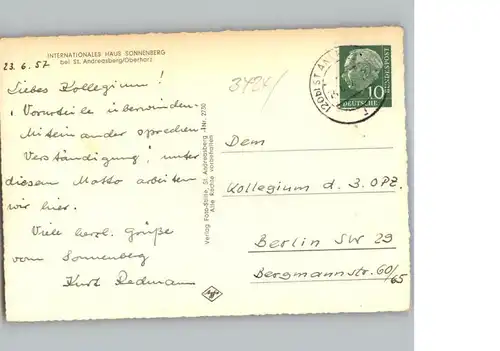 INTERNATIONALES HAUS SONNENBERG
bei St. Andreasberg/Oberharz
23.6.57
Liebes Kollegium!
„Vorurteile überwinden
Miteinander sprechen
Verständigung", unter
diesem Motto arbeiten
wir hier.
Viele herzl. Grüße
vom Sonnenberg
Kurt Redmann
Verlag Foto-Stille, St. Andreasberg Nr. 2750
Alle Rechte vorbehalten
3424/
(20b) ST. AN
10
DEUTSCHE
BUNDESPOST
Dem
Kollegium d. 3. OPZ.
Berlin SW 29
Bergmannstr. 60/65